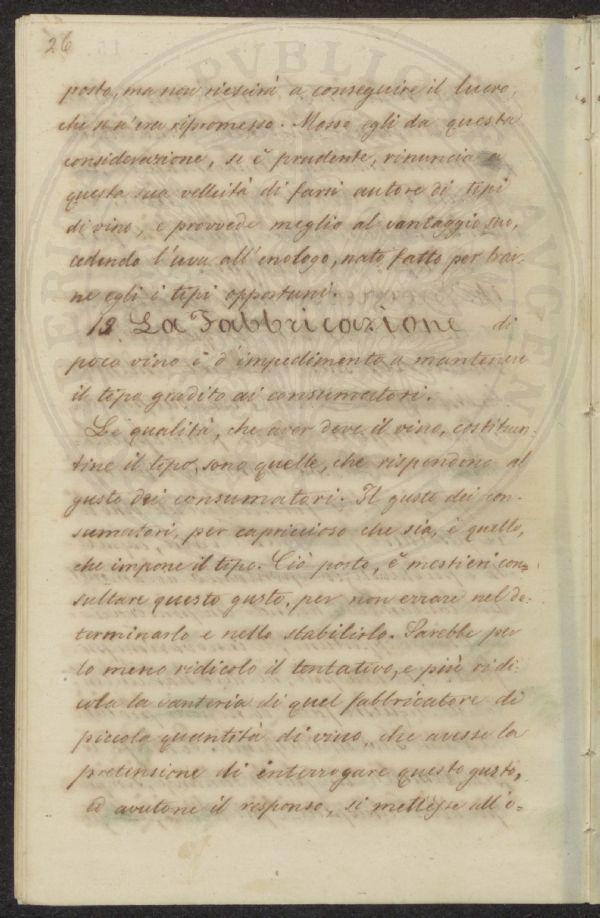 26
posto, ma non riescirà a conseguire il lucro,
che se n'era ripromesso. Mosso egli da questa
considerazione, se è prudente, rinuncia a
questa sua velleità di farsi autore di tipi
di vino, e provvede meglio al vantaggio suo,
cedendo l'uva all'enologo, nato fatto per trar-
ne egli i tipi opportuni.
12 La Fabbricazione di
poco vino è d'impedimento a mantenere
il tipo gradito ai consumatori.
Le qualità, che aver deve il vino, costituen-
tine il tipo, sono quelle, che rispondono al
gusto dei consumatori. Il gusto dei con-
sumatori, per capriccioso che sia, è quello,
che impone il tipo. Ciò posto, è mestieri con-
sultare questo gusto, per non errare nel de-
terminarlo e nello stabilirlo. Sarebbe per
lo meno ridicolo il tentativo, e più ridi
cola la vanteria di quel fabbricatore di
piccola quantità di vino, che avesse la
pretensione di interrogare questo gusto,
ed avutone il responso, si mettesse all'o-